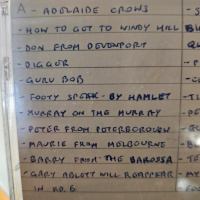 A - ADELAIDE CROWS
- HOW TO GOT TO WINDY HILL
- DON FROM DEVONPORT
- DIGGER
- GURU BOB
- FOOTY SPEAK - BY HAMLET
- MURRAY ON THE MURRAY
- PETER FROM PETERBOROUGH
- MAURIE FROM MELBOURNE
- BARRY FROM THE BAROSSA
- GARY ABLETT WILL REAPPEAR
IN NO. 6